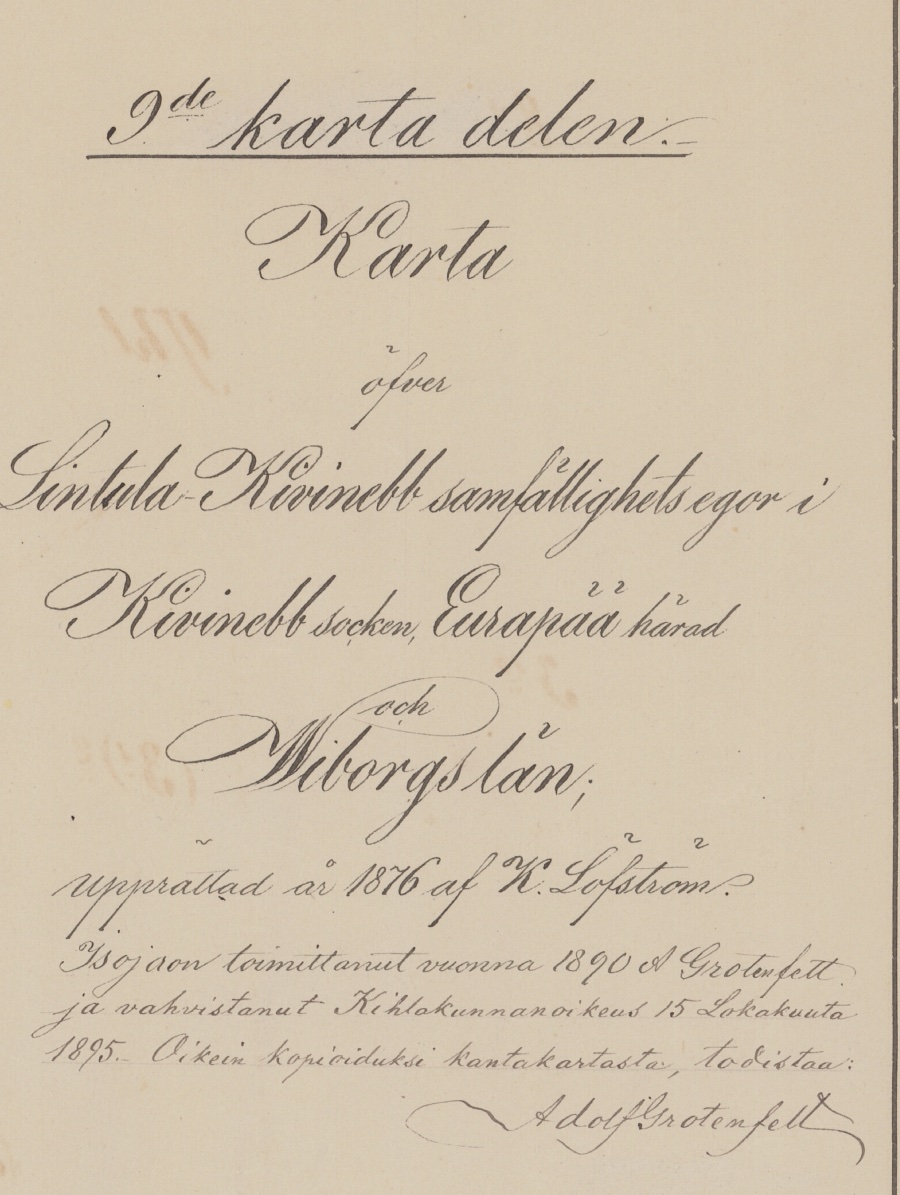 9de karta delen.
Karta
öfver
Lintula-Kivinebb samfällighets egor i
Kivinebb socken, Eurapää härad
och
Wiborgs län;
upprättad år 1876 af K. Löfström.
Isojaon toimittanut vuonna 1890 A Grotenfelt.
ja vahvistanut Kihlakunnanoikeus 15 Lokakuuta
1895. Oikein kopioiduksi kantakartasta, todistaa:
Adolf Grotenfelt